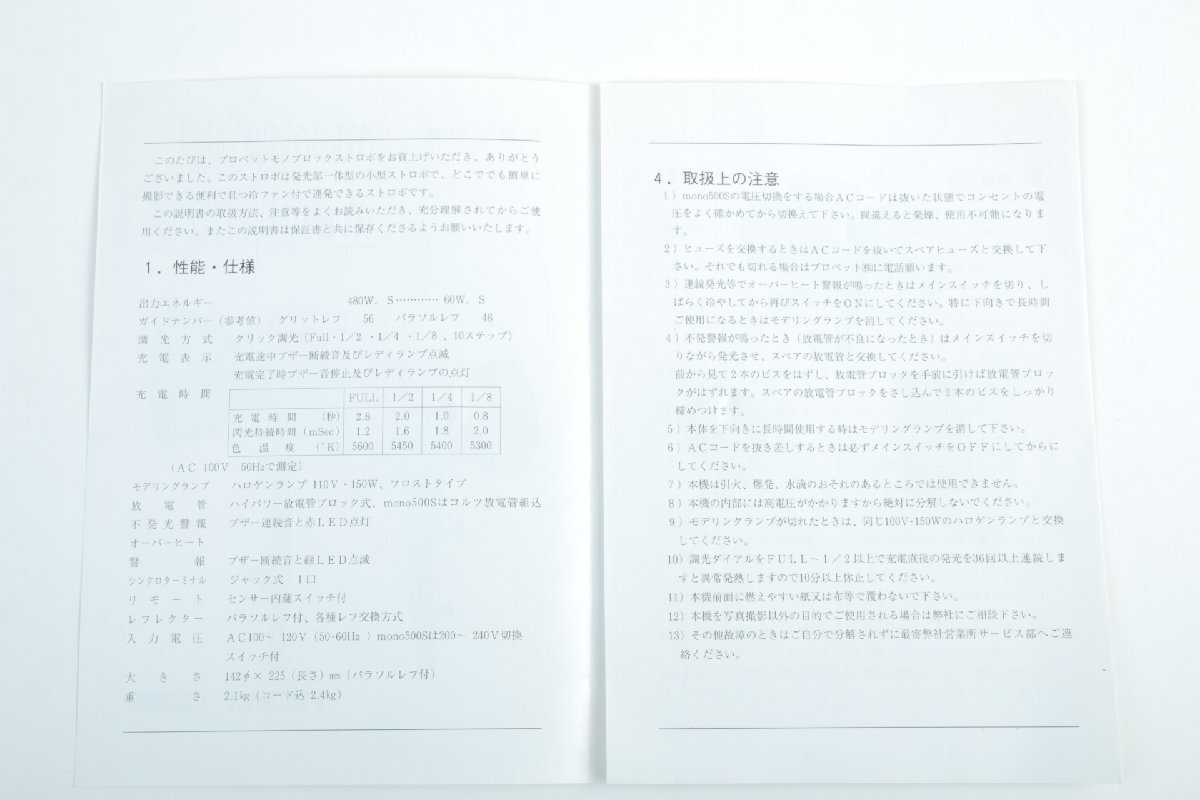 このたびは、プロペットモノブロックストロボをお買上げいただき、ありがとう
ございました。このストロボは発光部一体型の小型ストロボで、どこででも簡単に
撮影できる便利で且つ冷ファン付で連発できるストロボです。
この説明書の取扱方法、注意等をよくお読みいただき、充分理解されてからご使
用ください。またこの説明書は保証書と共に保存くださるようお願いいたします。
1．性能・仕様
出力エネルギー 480W．S…………60W．S
ガイドナンバー（参考値） グリットレフ 56 パラソルレフ 46
調光方式 クリック調光（Full・1/2・1/4・1/8、10ステップ）
充電表示 充電途中ブザー断続音及びレディランプ点滅
充電完了時ブザー音停止及びレディランプの点灯
充電時間
FULL 1/2 1/4 1/8
充電時間（秒） 2.8 2.0 1.0 0.8
閃光持続時間（mSec） 1.2 1.6 1.8 2.0
色温度（°K） 5600 5450 5400 5300
（AC 100V 50Hzで測定）
モデリングランプ ハロゲンランプ 110V・150W、フロストタイプ
放電管 ハイパワー放電管ブロック式、mono500Sはコルツ放電管組込
不発光警報 ブザー連続音と赤LED点灯
オーバーヒート
警報 ブザー断続音と緑LED点滅
シンクロターミナル ジャック式 1口
リモート センサー内蔵スイッチ付
レフレクター パラソルレフ付、各種レフ交換方式
入力電圧 AC100～120V（50・60Hz）mono500Sは200～240V切換
スイッチ付
大きさ 142φ×225（長さ）㎜（パラソルレフ付）
重さ 2.1kg（コード込 2.4kg）
4．取扱上の注意
1）mono500Sの電圧切換をする場合ACコードは抜いた状態でコンセントの電
圧をよく確かめてから切換えて下さい。間違えると発煙、使用不可能になりま
す。
2）ヒューズを交換するときはACコードを抜いてスペアヒューズと交換して下
さい。それでも切れる場合はプロペット㈱に電話願います。
3）連続発光等でオーバーヒート警報が鳴ったときはメインスイッチを切り、し
ばらく冷やしてから再びスイッチをONにしてください。特に下向きで長時間
ご使用になるときはモデリングランプを消してください。
4）不発警報が鳴ったとき（放電管が不良になったとき）はメインスイッチを切
りながら発光させ、スペアの放電管と交換してください。
前から見て2本のビスをはずし、放電管ブロックを手前に引けば放電管ブロッ
クがはずれます。スペアの放電管ブロックをさし込んで2本のビスをしっかり
締めつけます。
5）本体を下向きに長時間使用する時はモデリングランプを消して下さい。
6）ACコードを抜き差しするときは必ずメインスイッチをOFFにしてからに
してください。
7）本機は引火、爆発、水滴のおそれのあるところでは使用できません。
8）本機の内部には高電圧がかかりますから絶対に分解しないでください。
9）モデリングランプが切れたときは、同じ100V・150Wのハロゲンランプと交換
してください。
10）調光ダイアルをFULL～1/2以上で充電直後の発光を36回以上連続しま
すと異常発熱しますので10分以上休止してください。
11）本機前面に燃えやすい紙又は布等で覆わないで下さい。
12）本機を写真撮影以外の目的でご使用される場合は弊社にご相談下さい。
13）その他故障のときはご自分で分解されずに最寄弊社営業所サービス部へご連
絡ください。